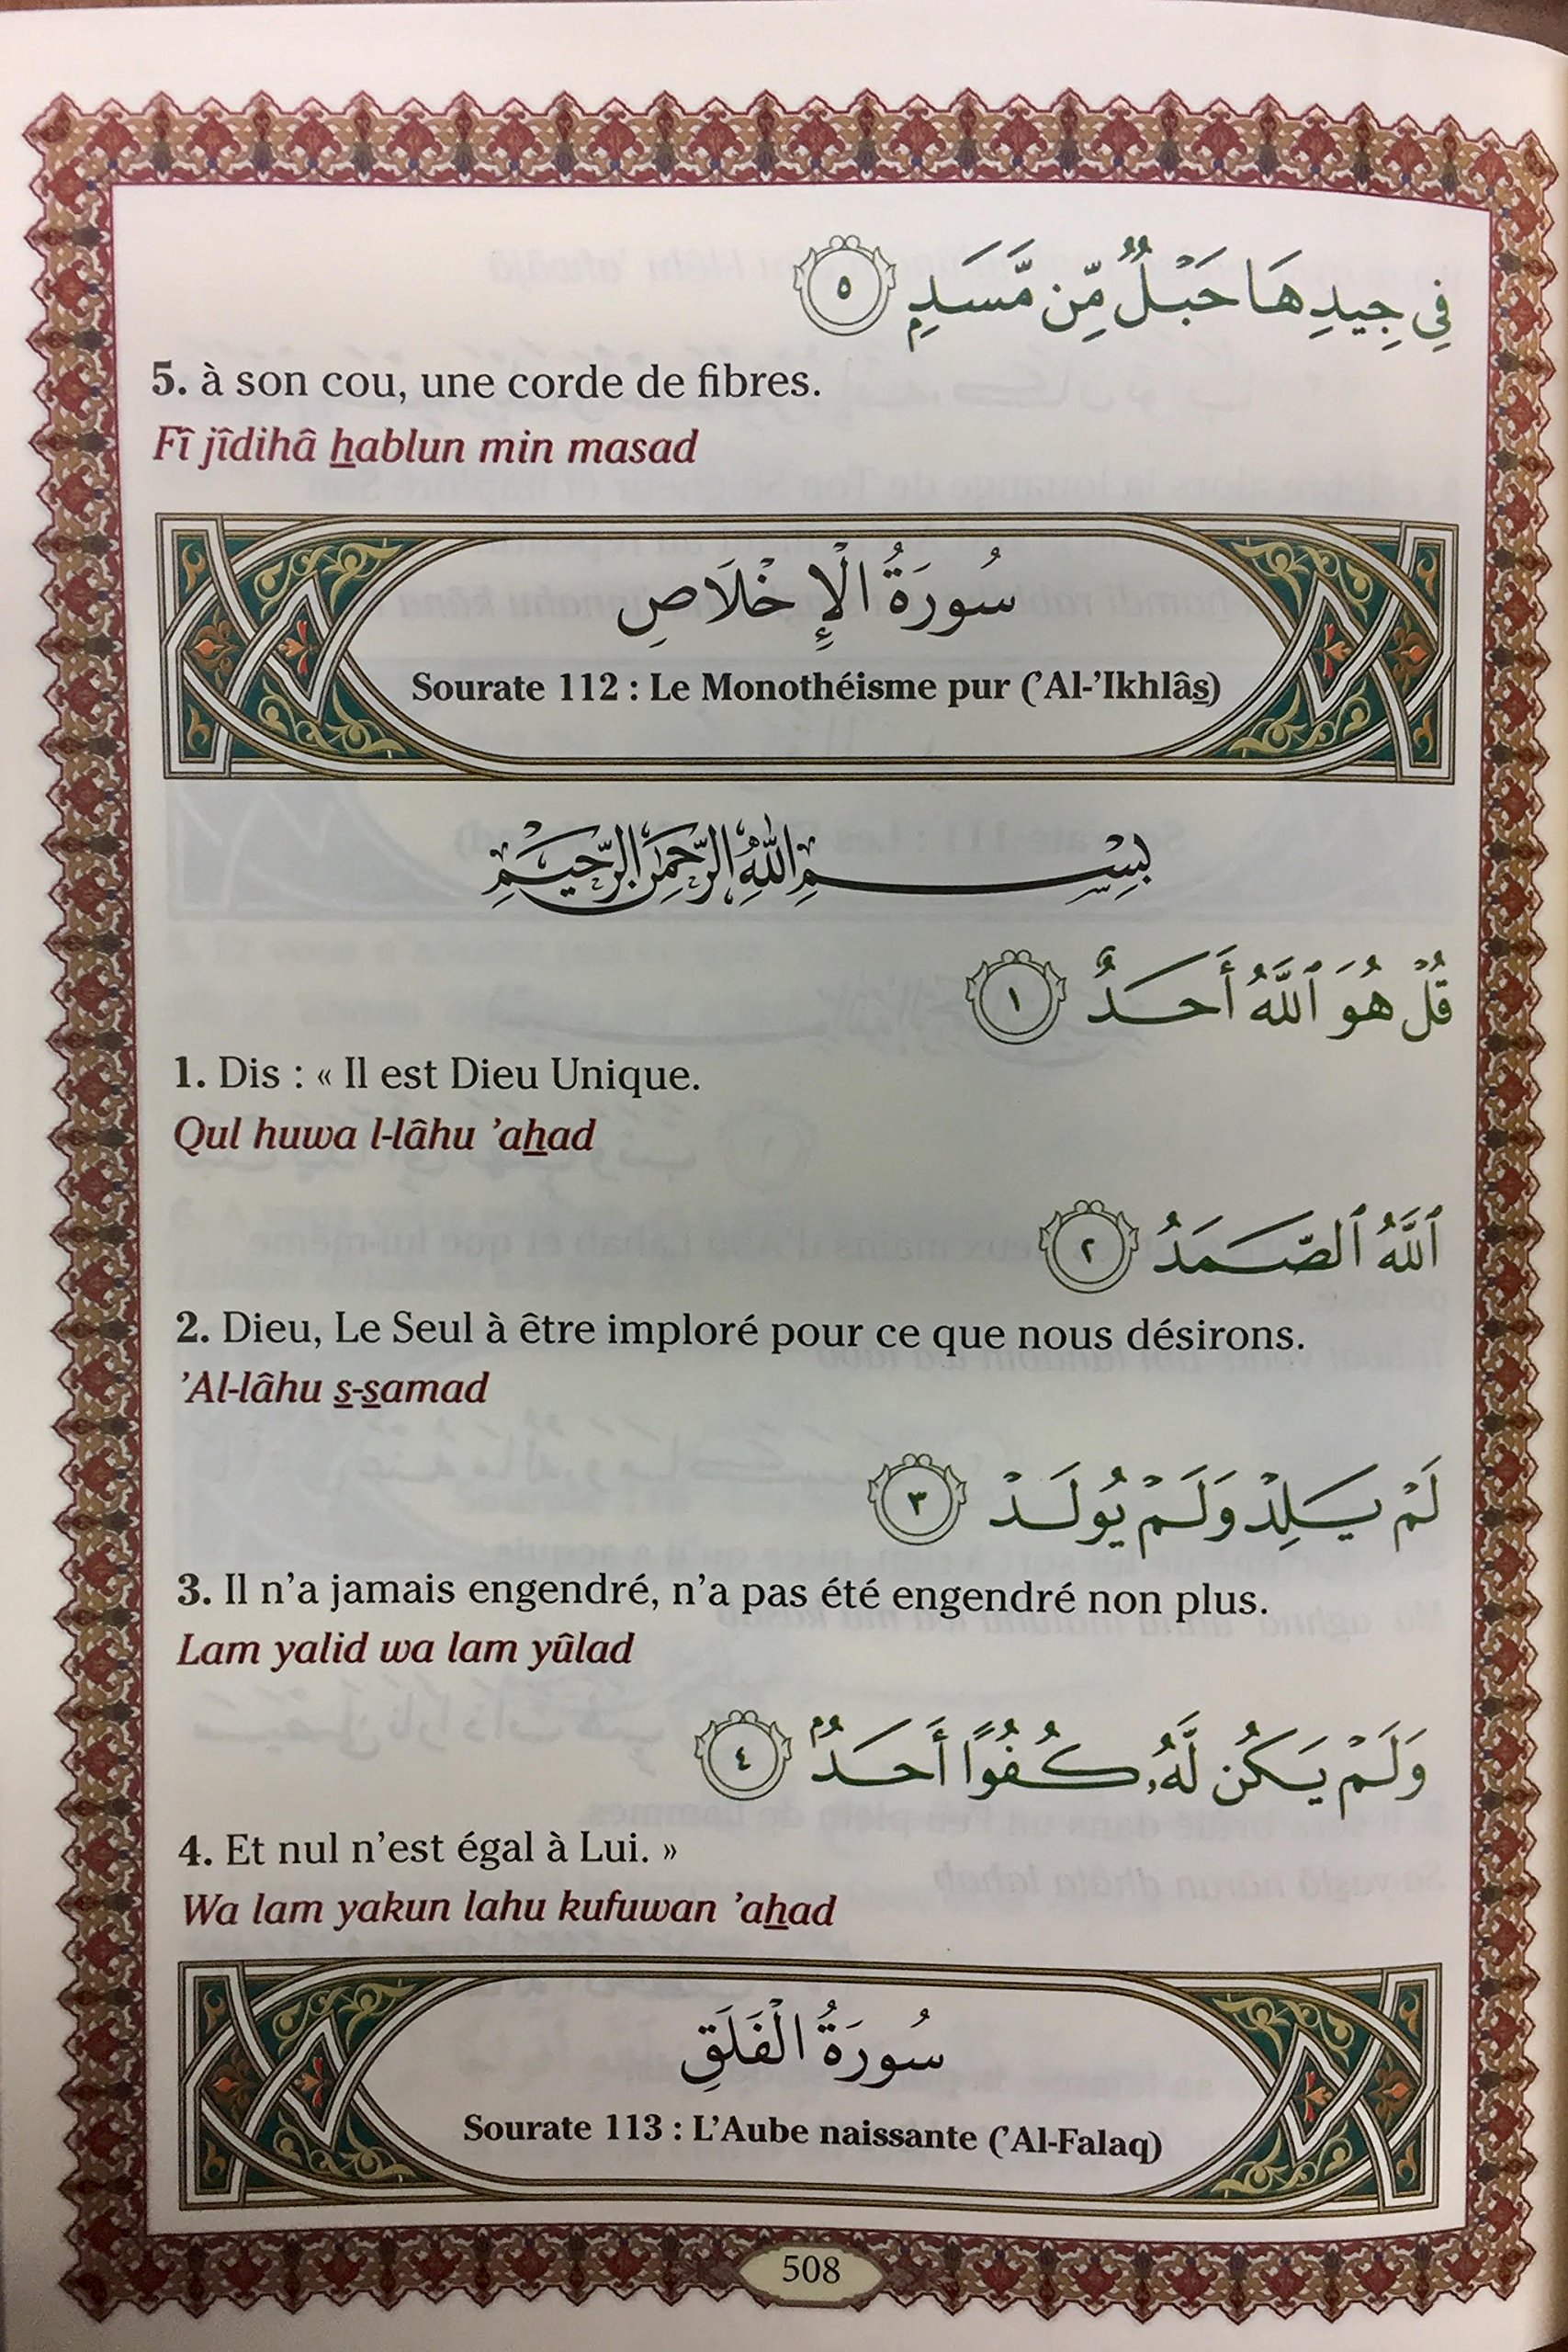 فِي جِيدِهَا حَبْلٌ مِّن مَّسَدٍ ٥
5. à son cou, une corde de fibres.
Fî jîdihâ hablun min masad
سُورَةُ الْإِخْلَاصِ
Sourate 112 : Le Monothéisme pur (’Al-’Ikhlâs)
بِسْمِ اللَّهِ الرَّحْمَٰنِ الرَّحِيمِ
قُلْ هُوَ ٱللَّهُ أَحَدٌ ١
1. Dis : « Il est Dieu Unique.
Qul huwa l-lâhu ’ahad
ٱللَّهُ ٱلصَّمَدُ ٢
2. Dieu, Le Seul à être imploré pour ce que nous désirons.
’Al-lâhu s-samad
لَمْ يَلِدْ وَلَمْ يُولَدْ ٣
3. Il n’a jamais engendré, n’a pas été engendré non plus.
Lam yalid wa lam yûlad
وَلَمْ يَكُن لَّهُۥ كُفُوًا أَحَدٌۢ ٤
4. Et nul n’est égal à Lui. »
Wa lam yakun lahu kufuwan ’ahad
سُورَةُ الْفَلَقِ
Sourate 113 : L’Aube naissante (’Al-Falaq)
508